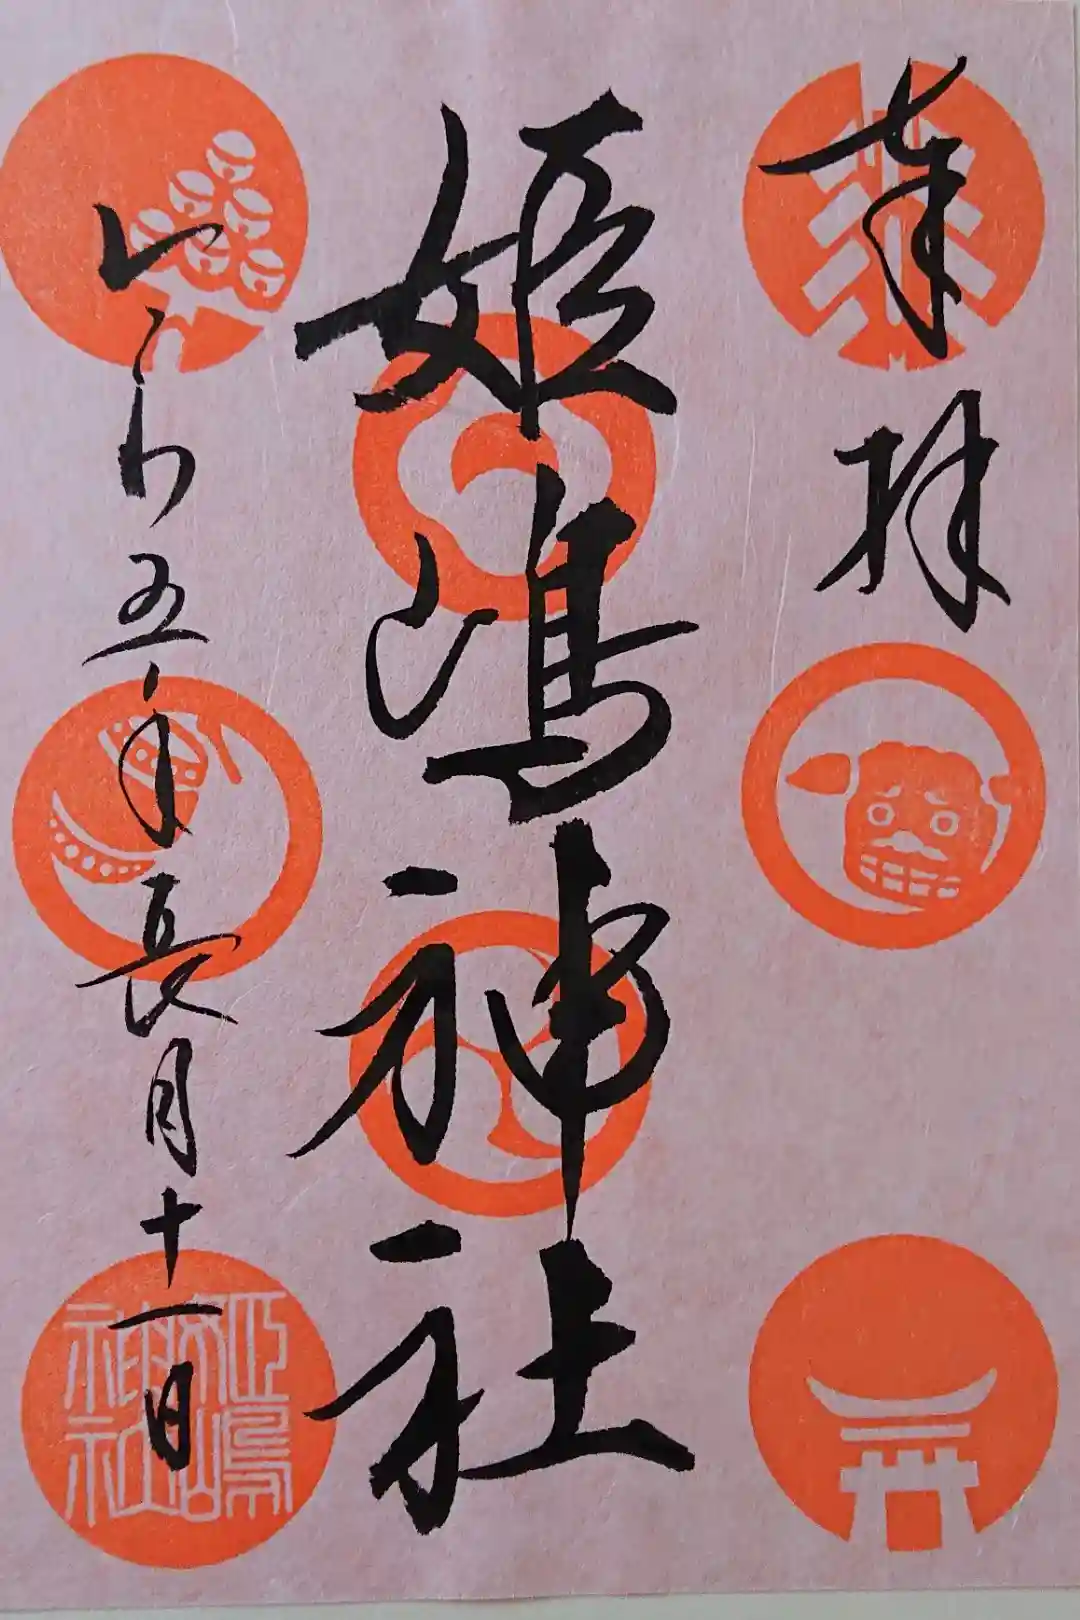 奉拝
姫嶋神社
令和五年長月十一日
姫嶋
神社